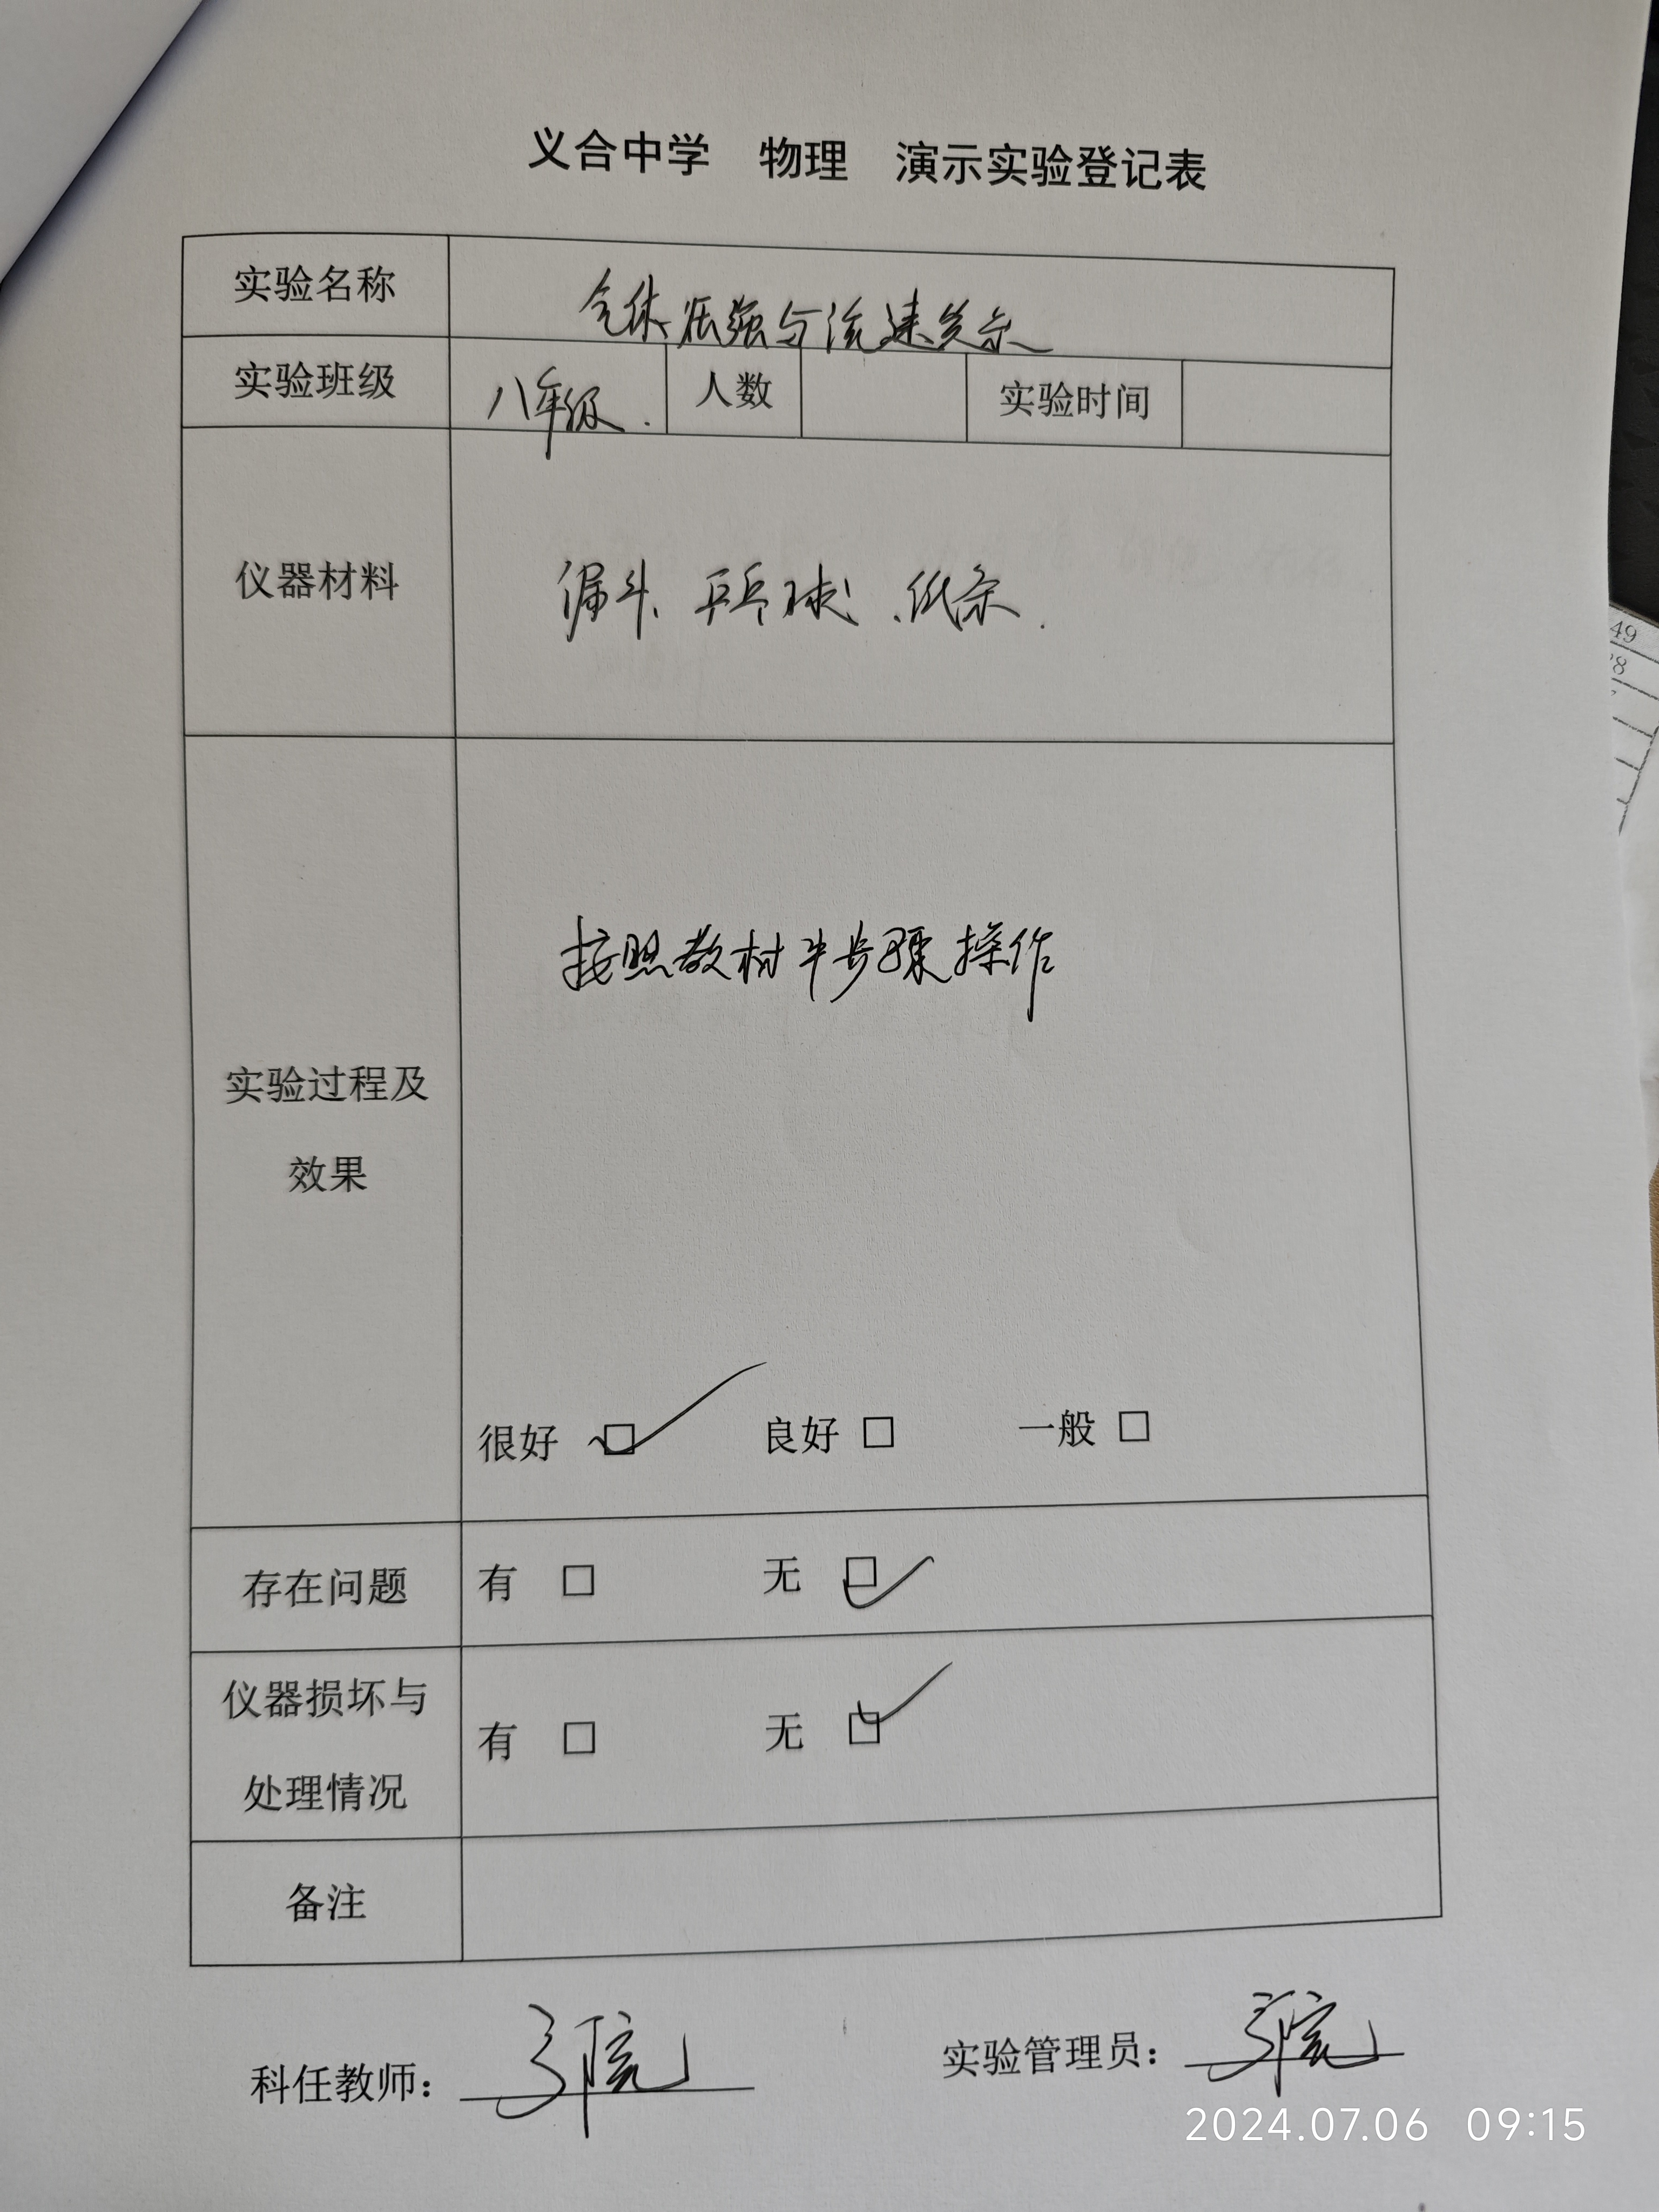 义合中学 物理 演示实验登记表
实验名称 气体压强与流速关系
实验班级 八年级. 人数 实验时间
仪器材料 漏斗、乒乓球、纸条.
实验过程及
效果
按照教材步骤操作
很好 良好 一般
存在问题 有 无
仪器损坏与
处理情况
有 无
备注
科任教师:
实验管理员:
2024.07.06 09:15
49